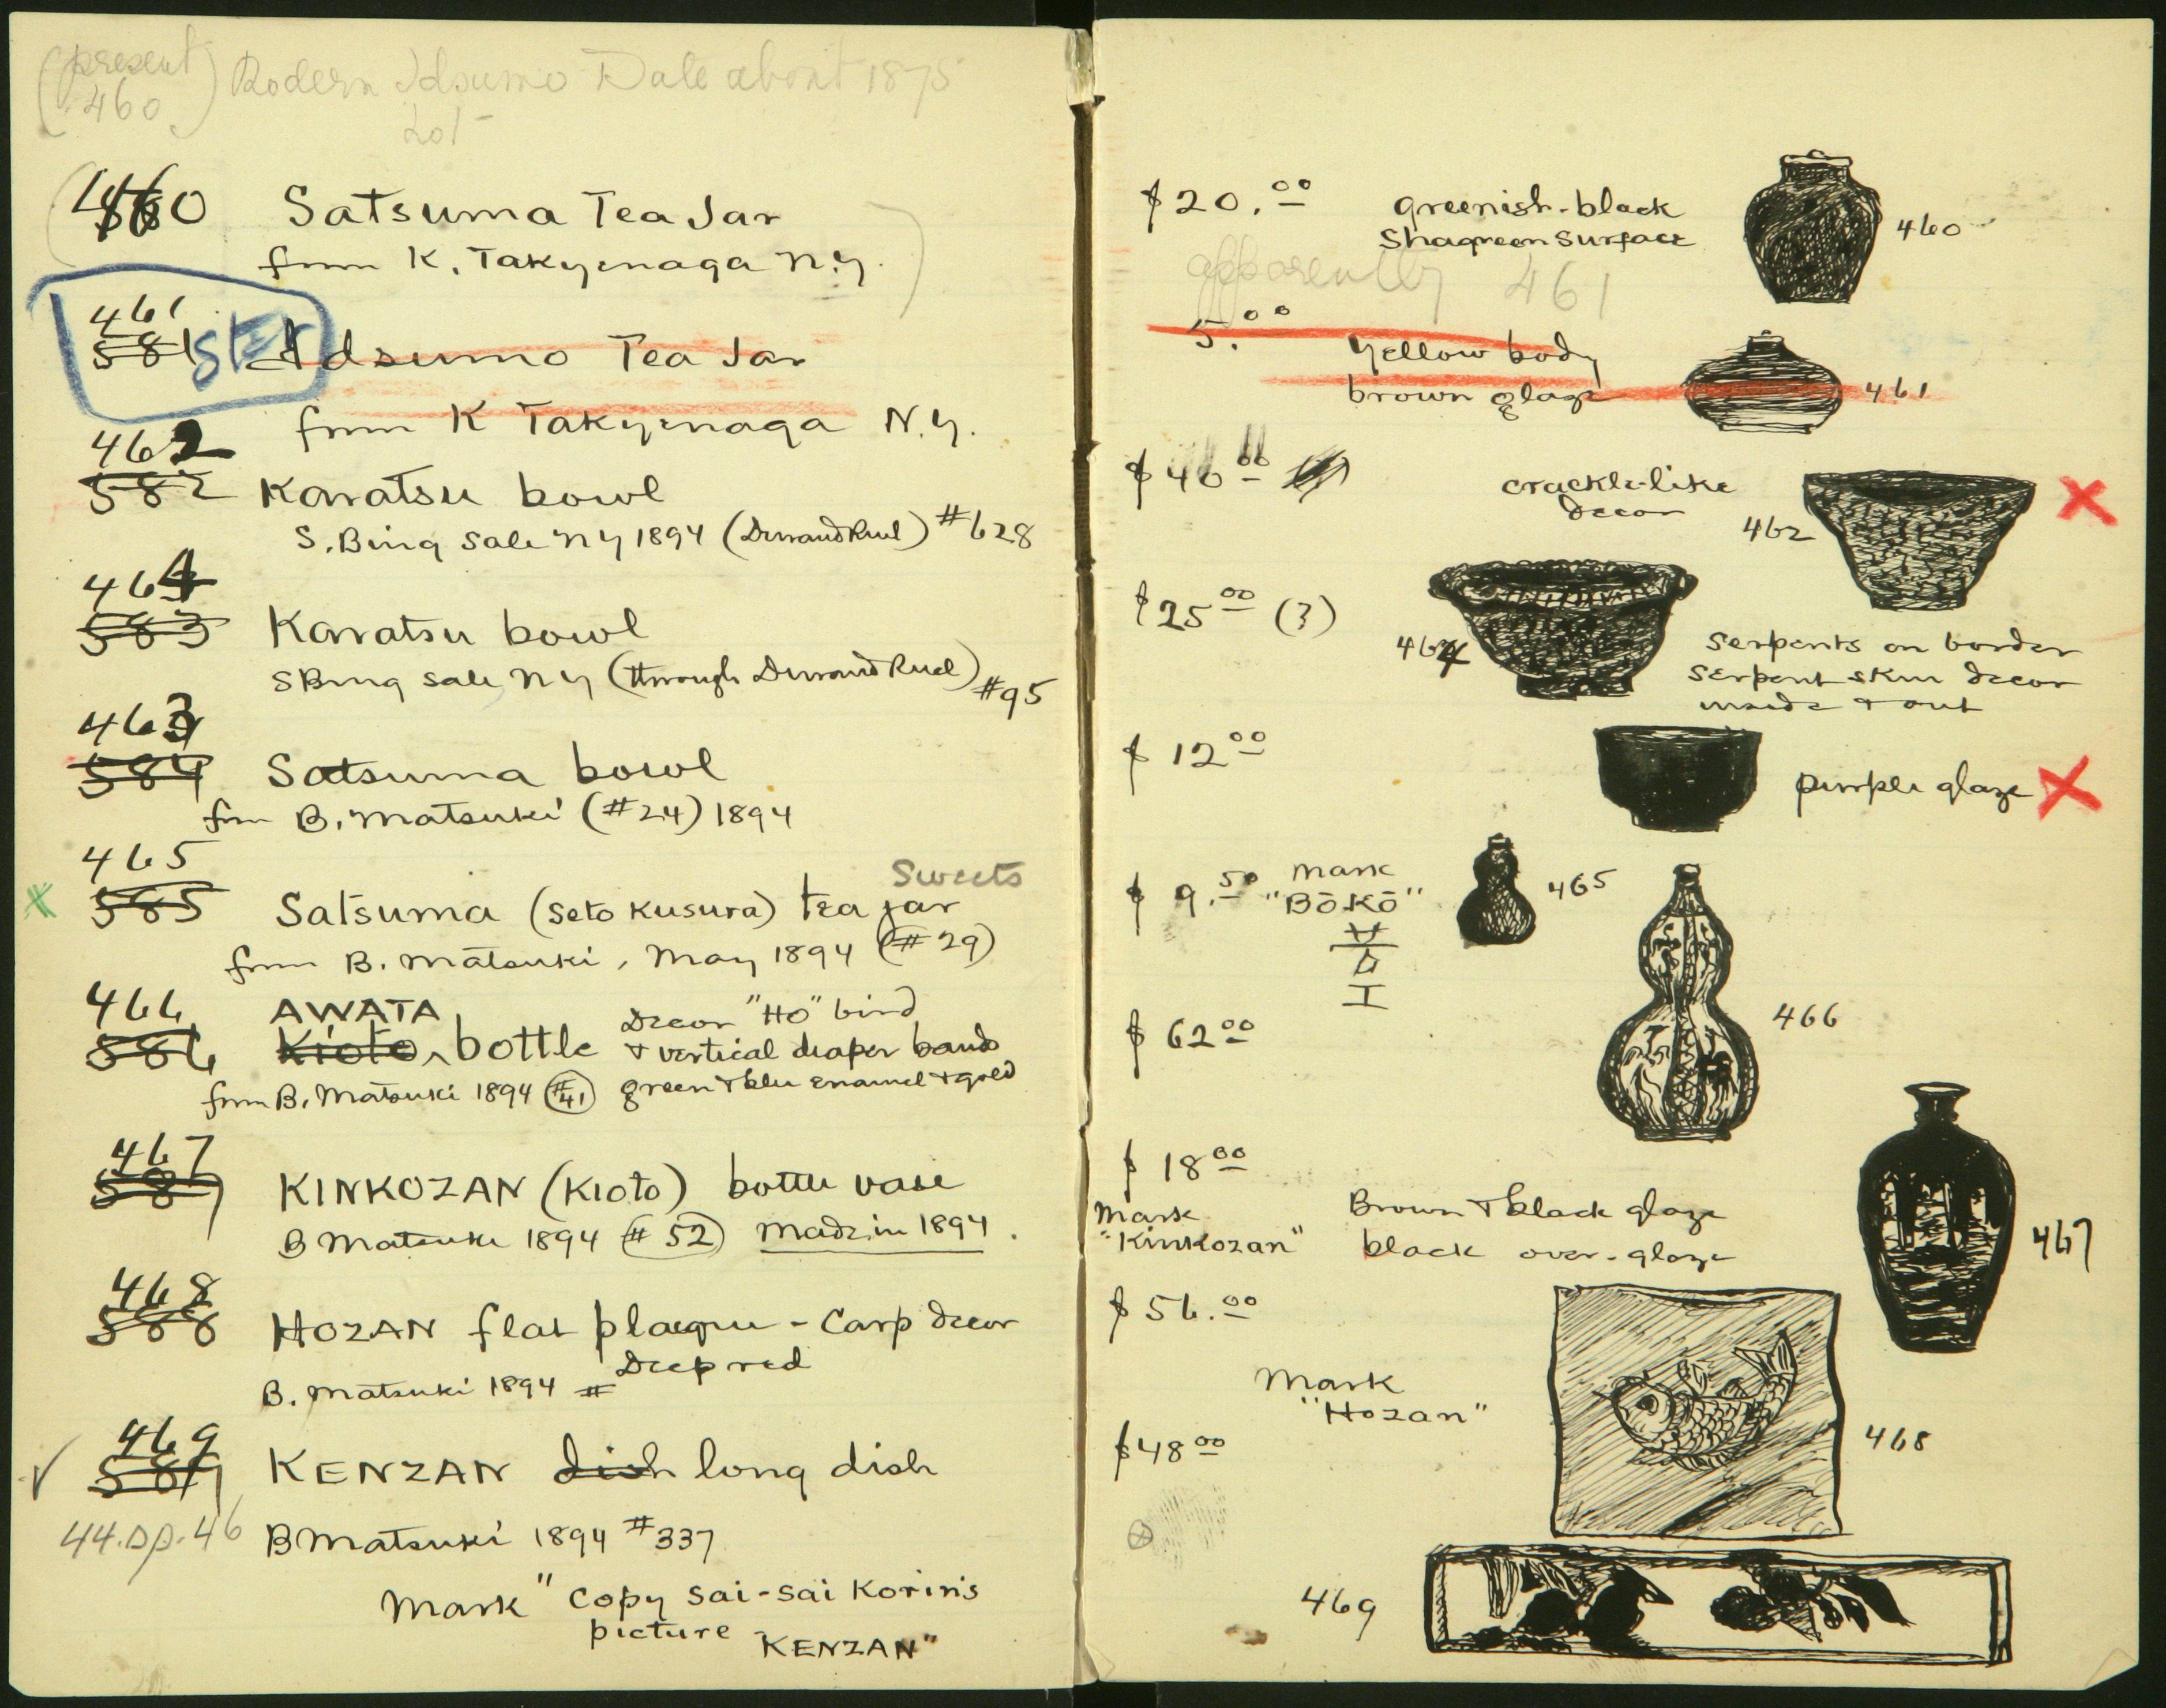 (present 460) Modern Idsumo Date about 1875
lot
460 Satsuma Tea Jar
from K. Takyenaga N.Y.
461
581 Idsumo Tea Jar
from K Takyenaga N.Y.
462
582 Karatsu bowl
S. Bing Sale NY 1894 (Durand Ruel) #628
464
583 Karatsu bowl
S Bing sale NY (through Durand Ruel) #95
463
584 Satsuma bowl
from B. Matsuki (#24) 1894
465
585 Satsuma (Seto Kusura) tea jar
Sweets
from B. Matsuki, May 1894 (#29)
466
AWATA
586 Kioto bottle
Decor "Ho" bird
+ vertical diaper bands
green + blu enamel + gold
from B. Matsuki 1894 #41
467
587 KINKOZAN (Kioto) bottle vase
B Matsuki 1894 #52 Made in 1894.
468
588 HOZAN flat plaque - Carp decor
Deep red
B. Matsuki 1894 #
469
589 KENZAN dish long dish
44.sp.46
B Matsuki 1894 #337
Mark "Copy Sai-sai Korin's
picture
KENZAN"
$20.00 greenish-black
Shagreen Surface
460
apparently 461
5.00
yellow body
brown glaze
461
$40.00
crackle-like
decor
462
$25.00 (3)
464
Serpents on border
Serpent skin decor
inside + out
$12.00
purple glaze
$9.50
Mark
"Bōkō"
465
$62.00
466
$18.00
Mark
"Kinkozan"
Brown + black glaze
black over-glaze
467
$56.00
Mark
"Hozan"
468
$48.00
469